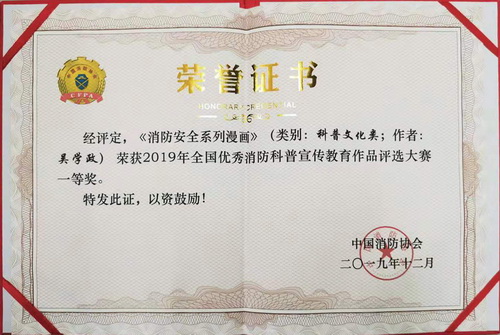 CFPA
荣誉证书
HONORARY CREDENTIAL
经评定，《消防安全系列漫画》（类别：科普文化类；作者：
吴学政）荣获2019年全国优秀消防科普宣传教育作品评选大赛
一等奖。
特发此证，以资鼓励！
中国消防协会
二〇一九年十二月